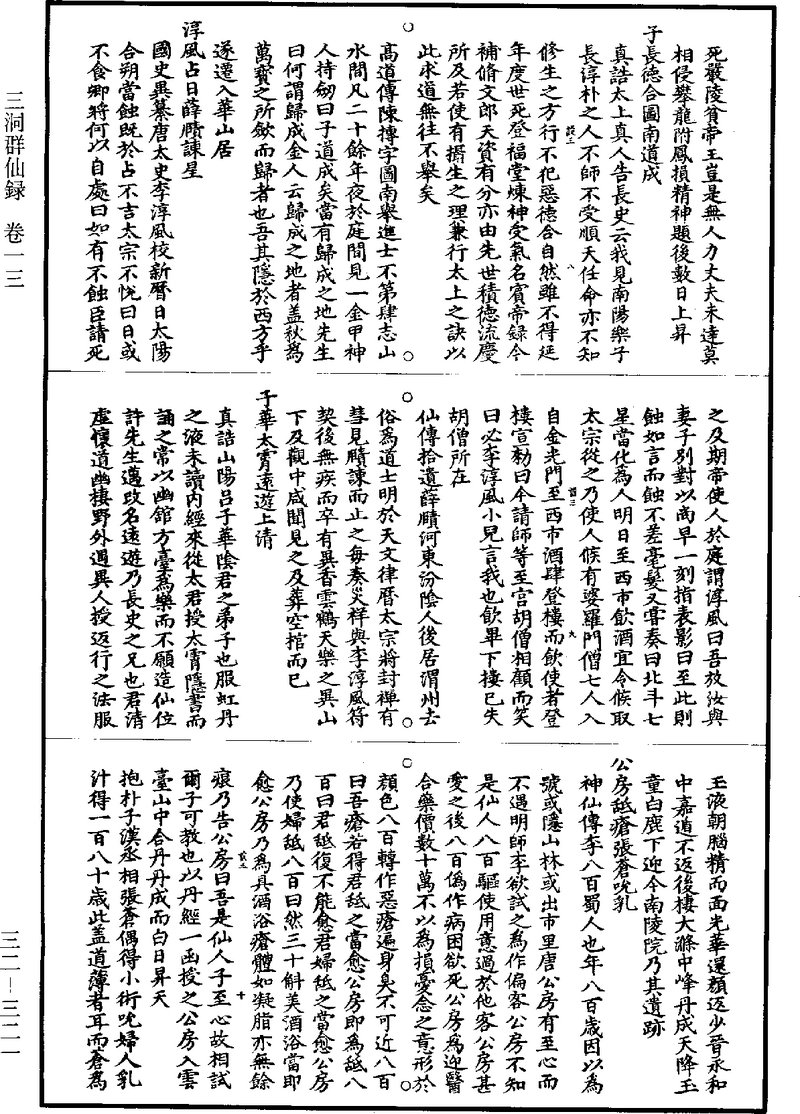 三洞群仙録　卷一三
三二—三二一
死嚴陵貧帝王豈是無人力丈夫未達莫
相侵攀龍附鳳損精神題後數日上昇
子長德合圖南道成
真誥太上真人告長史云我見南陽樂子
長淳朴之人不師不受順天任命亦不知
修生之方行不犯惡德合自然雖不得延
年度世死登福堂煉神受氣名賓帝録今
補脩文郎天資有分亦由先世積德流慶
所及若使有攝生之理兼行太上之訣以
此求道無往不舉矣
高道傳陳摶字圖南舉進士不第肆志山
水間凡二十餘年夜於庭間見一金甲神
人持劒曰子道成矣當有歸成之地先生
曰何謂歸成金人云歸成之地者盖秋爲
萬寳之所歛而歸者也吾其隱於西方乎
遂遷入華山居
淳風占日薛賾諫星
國史異纂唐太史李淳風校新曆日太陽
合朔當蝕既於占不吉太宗不悅曰日或
不食卿將何以自處曰如有不蝕臣請死
之及期帝使人於庭謂淳風曰吾放汝與
妻子别對以尚早一刻指表影曰至此則
蝕如言而蝕不差毫髮又嘗奏曰北斗七
星當化爲人明日至西市飲酒宜令候取
太宗從之乃使人候有婆羅門僧七人入
自金光門至西市酒肆登樓而飲使者登
樓宣勑曰今請師等至宫胡僧相顧而笑
曰必李淳風小兒言我也飲畢下樓已失
胡僧所在
仙傳拾遺薛賾河東汾陰人後居渭州去
俗爲道士明於天文律曆太宗將封禪有
彗見賾諫而止之每奏災祥與李淳風符
契後無疾而卒有異香雲鶴天樂之異山
下及觀中咸聞見之及葬空棺而已
子華太霄遠遊上清
真誥山陽吕子華陰君之弟子也服虹丹
之液未讀内經來從太君授太霄隱書而
誦之常以幽館方臺爲樂而不願造仙位
許先生邁改名遠遊乃長史之兄也君清
虚懷道幽棲野外遇異人授返行之法服
玉液朝腦精而面光華還顔返少晉永和
中嘉道不返後棲大滌中峰丹成天降玉
童白鹿下迎今南陵院乃其遺跡
公房舐瘡張蒼吮乳
神仙傳李八百蜀人也年八百歲因以爲
號或隱山林或出市里唐公房有至心而
不遇明師李欲試之爲作傭客公房不知
是仙人八百驅使用意過於他客公房甚
愛之後八百僞作病困欲死公房爲迎醫
合藥價數十萬不以爲損憂念之意形於
顔色八百轉作惡瘡遍身臭不可近八百
曰吾瘡若得君舐之當愈公房即爲舐八
百曰君舐復不能愈君婦舐之當愈公房
乃使婦舐八百曰然三十斛美酒浴當即
愈公房乃爲具酒浴瘡體如凝脂亦無餘
痕乃告公房曰吾是仙人子至心故相試
爾子可教也以丹經一函授之公房入雲
臺山中合丹丹成而白日昇天
抱朴子漢丞相張蒼偶得小術吮婦人乳
汁得一百八十歲此盖道薄者耳而蒼爲